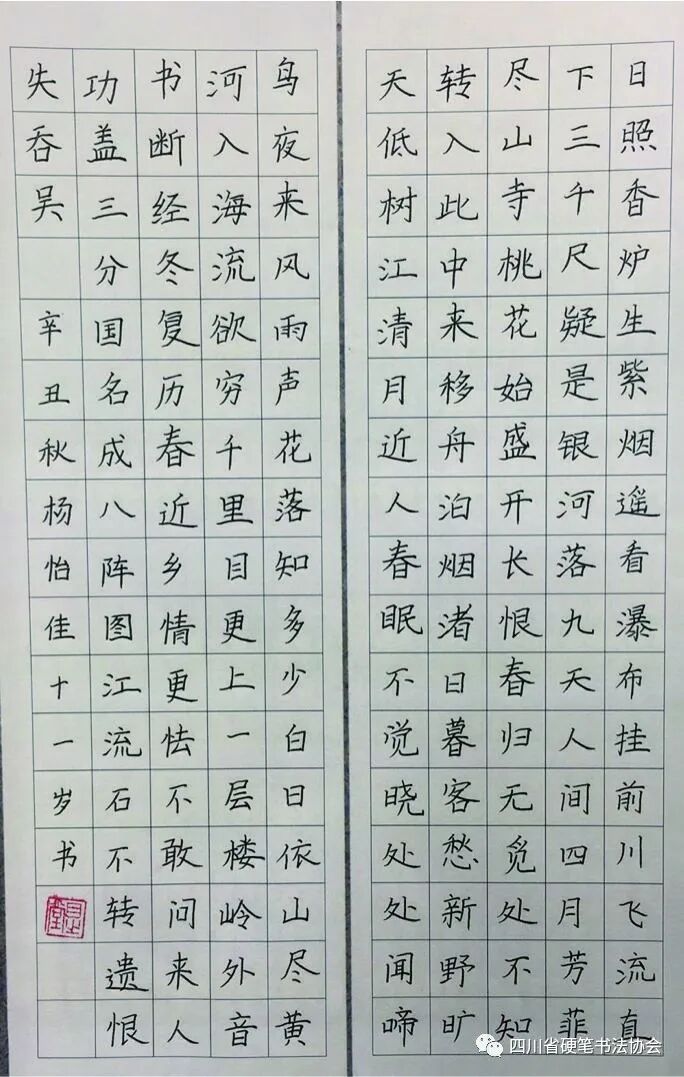 日照香炉生紫烟遥看瀑布挂前川飞流直
下三千尺疑是银河落九天人间四月芳菲
尽山寺桃花始盛开长恨春归无觅处不知
转入此中来移舟泊烟渚日暮客愁新野旷
天低树江清月近人春眠不觉晓处处闻啼
鸟夜来风雨声花落知多少白日依山尽黄
河入海流欲穷千里目更上一层楼岭外音
书断经冬复历春近乡情更怯不敢问来人
功盖三分国名成八阵图江流石不转遗恨
失吞吴 辛丑秋杨怡佳十一岁书
四川省硬笔书法协会